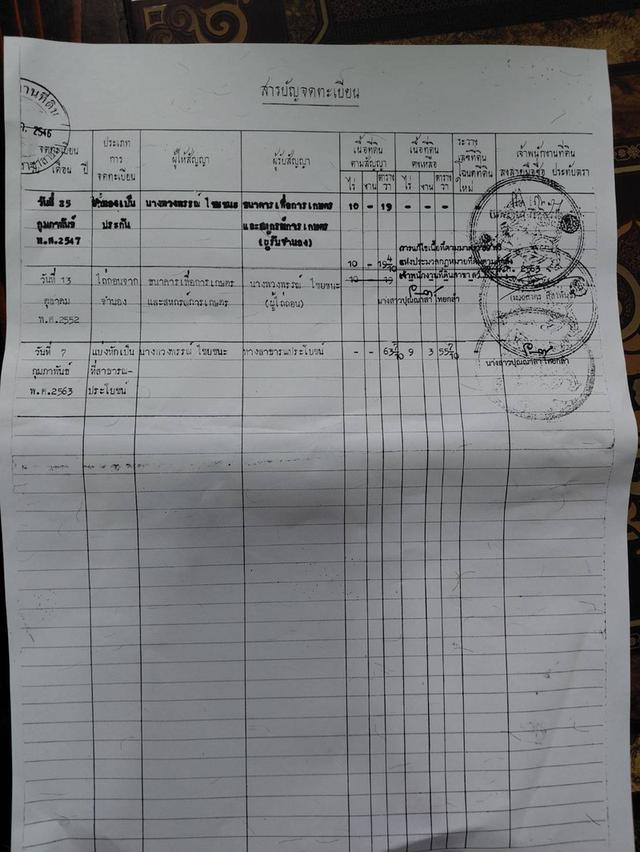 สารบัญจดทะเบียน
านที่ดิน
2546
จดทะเบียน
เดือน ปี
ประเภท
การ
จดทะเบียน
ผู้ให้สัญญา
ผู้รับสัญญา
เนื้อที่ดิน
ตามสัญญา
ไร่ งาน ตาราง
วา
เนื้อที่ดิน
คงเหลือ
ไร่ งาน ตาราง
วา
ระวาง
เลขที่ดิน
โฉนดที่ดิน
ใหม่
เจ้าพนักงานที่ดิน
ลงลายมือชื่อ ประทับตรา
วันที่ 25
กุมภาพันธ์
พ.ศ.2547
จำนองเป็น
ประกัน
นางพวงพรรณ์ ไชยชนะ
ธนาคารเพื่อการเกษตร
และสหกรณ์การเกษตร
(ผู้รับจำนอง)
10 - 19 - - -
10 - 19 4/10
10 - 19
การแก้ไขเนื้อที่ตามมาตรา
แห่งประมวลกฎหมายที่ดิน
2563
เจ้าพนักงานที่ดินสาขา
นางสาวปุณณภา ไทยกล้า
วันที่ 13
ตุลาคม
พ.ศ.2552
ไถ่ถอนจาก
จำนอง
ธนาคารเพื่อการเกษตร
และสหกรณ์การเกษตร
นางพวงพรรณ์ ไชยชนะ
(ผู้ไถ่ถอน)
วันที่ 7
กุมภาพันธ์
พ.ศ.2563
แบ่งหักเป็น
ที่สาธารณ-
ประโยชน์
นางพวงพรรณ์ ไชยชนะ
ทางสาธารณประโยชน์
- - 63 7/10 9 3 55 7/10
นางสาวปุณณภา ไทยกล้า